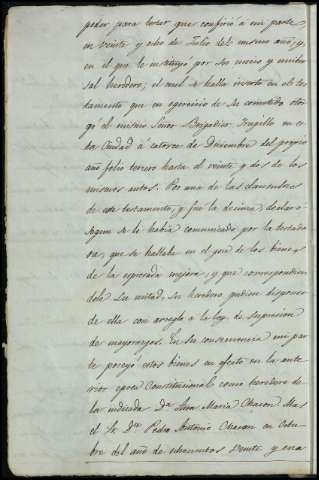 poder para testar que confirió a mi parte,
en veinte y ocho de Julio del mismo año, y
en el que le instituyó por su unico y univer
sal heredero; el cual se halla inserto en el tes
tamento que en egercicio de su cometido otor
gó el mismo Señor Brigadier Trugillo en es
ta Ciudad á catorce de Diciembre del propio
año folio tercero hasta el veinte y dos de los
mismos autos. Por una de las clausulas
de este testamento, y fue la decima, declaró
segun se le habia comunicado por la testado
ra, que se hallaba en el goce de los bienes
de la espresada mejora; y que correspondien
dole la mitad, su heredero pudiese disponer
de ella con arreglo a la ley de supresion
de mayorazgos. En su consecuencia mi par
te poseyó estos bienes en efecto en la ante
rior epoca Constitucional como heredero de
la indicada Dª. Ana Maria Chacon. Mas
el Sr. Dn. Pedro Antonio Chacon en Octu
bre del año de ochocientos veinte y